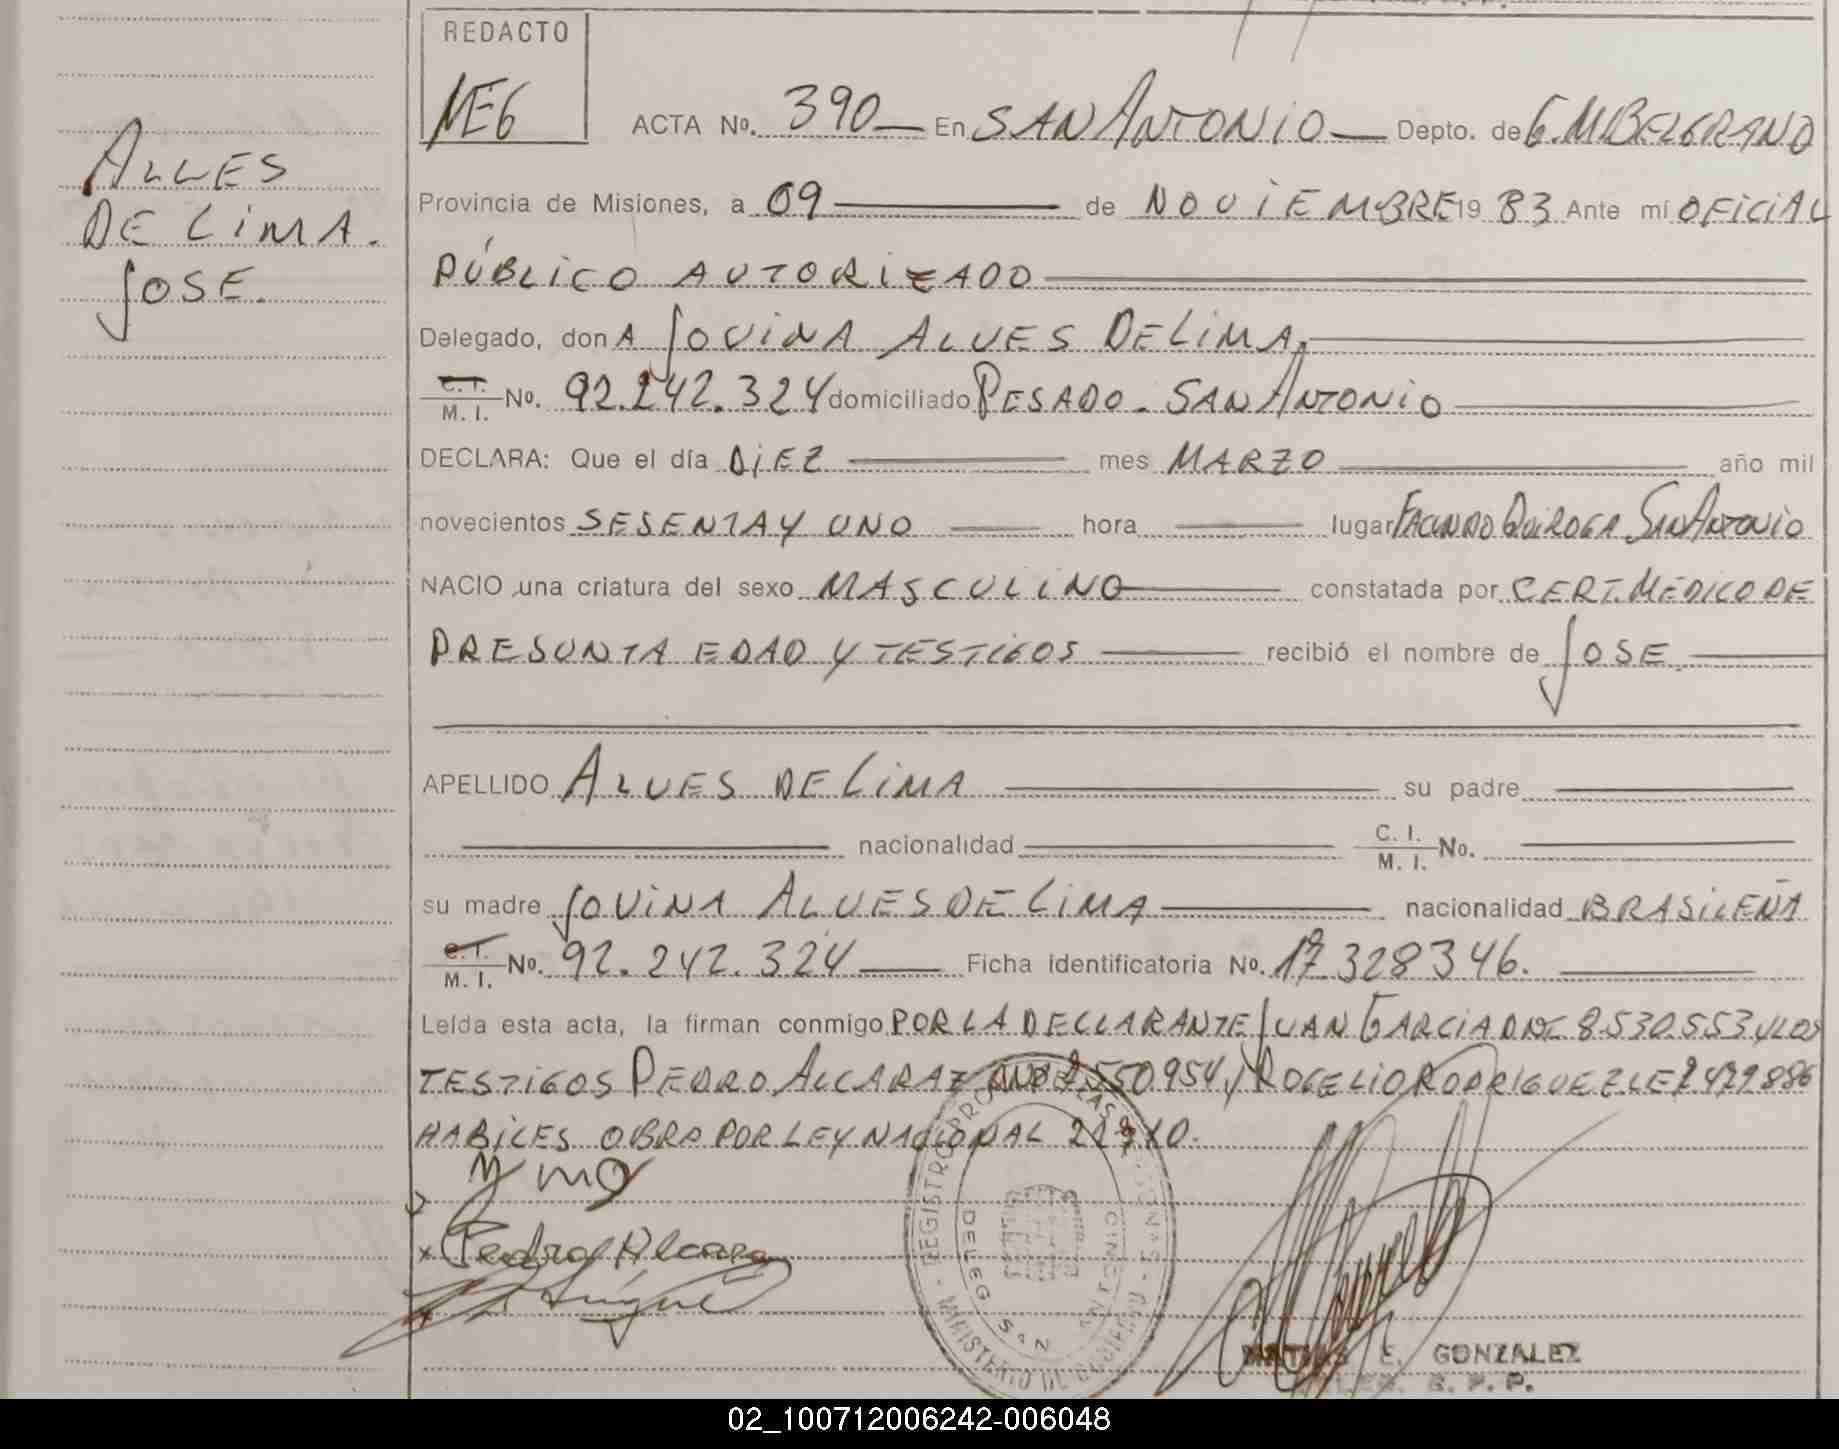 REDACTO
ALLES
DE LIMA.
JOSE.
ACTA No. 390 En SAN ANTONIO Depto. de G. M BELGRANO
Provincia de Misiones, a 09 de NOVIEMBRE 19 83 Ante mí OFICIAL
PÚBLICO AUTORIZADO
Delegado, don A JOVINA ALVES DE LIMA
C. I. / M. I. No. 92.242.324 domiciliado PESADO. SAN ANTONIO
DECLARA: Que el día DIEZ mes MARZO año mil
novecientos SESENTA Y UNO hora lugar FACUNDO QUIROGA SAN ANTONIO
NACIO una criatura del sexo MASCULINO constatada por CERT. MEDICO DE
PRESUNTA EDAD Y TESTIGOS recibió el nombre de JOSE
APELLIDO ALVES DE LIMA su padre
nacionalidad C. I. / M. I. No.
su madre JOVINA ALVES DE LIMA nacionalidad BRASILEÑA
C. I. / M. I. No. 92.242.324 Ficha identificatoria No. 328346.
Leída esta acta, la firman conmigo POR LA DECLARANTE JUAN GARCIA DNI 8.530.553 Y LOS
TESTIGOS PEDRO ALCARAZ 550.954 y ROGELIO RODRIGUEZ LE
HABILES OBRA POR LEY NACIONAL
Pedro Alcaraz
REGISTRO MISIONES - MINISTERIO DE GOBIERNO
DELEG. SAN ANTONIO
MATIAS E. GONZALEZ
02_100712006242-006048